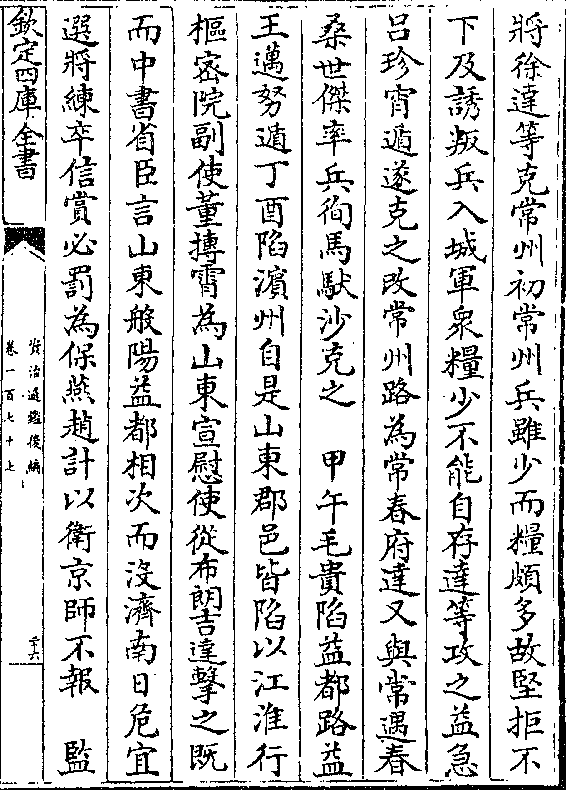 將徐達等克常州初常州兵雖少而糧頗多故堅拒不
下及誘叛兵入城軍衆糧少不能自存達等攻之益急
吕珍宵遁遂克之改常州路為常春府達又與常遇春
桑世傑率兵徇馬馱沙克之　甲午毛貴陷益都路益
王邁努遁丁酉陷濵州自是山東郡邑皆陷以江淮行
樞宻院副使董摶霄為山東宣慰使從布朗吉達擊之既
而中書省臣言山東般陽益都相次而沒濟南日危宜
選將練卒信賞必罰為保燕趙計以衛京師不報　監
欽定四庫全書
資治通鑑後編
卷一百七十上
二十六